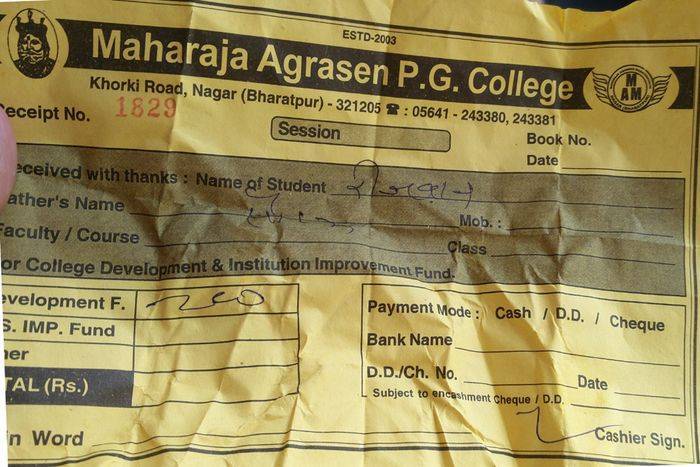 ESTD-2003
Maharaja Agrasen P.G. College
M
AM
Khorki Road, Nagar (Bharatpur) - 321205 ☎ : 05641 - 243380, 243381
Receipt No. 1829
Session
Book No.
Date
eceived with thanks : Name of Student
ather's Name
Mob. :
Faculty / Course
Class
or College Development & Institution Improvement Fund.
evelopment F.
S. IMP. Fund
her
TAL (Rs.)
n Word
Payment Mode : Cash / D.D. / Cheque
Bank Name
D.D./Ch. No. Date
Subject to encashment Cheque / D.D.
Cashier Sign.